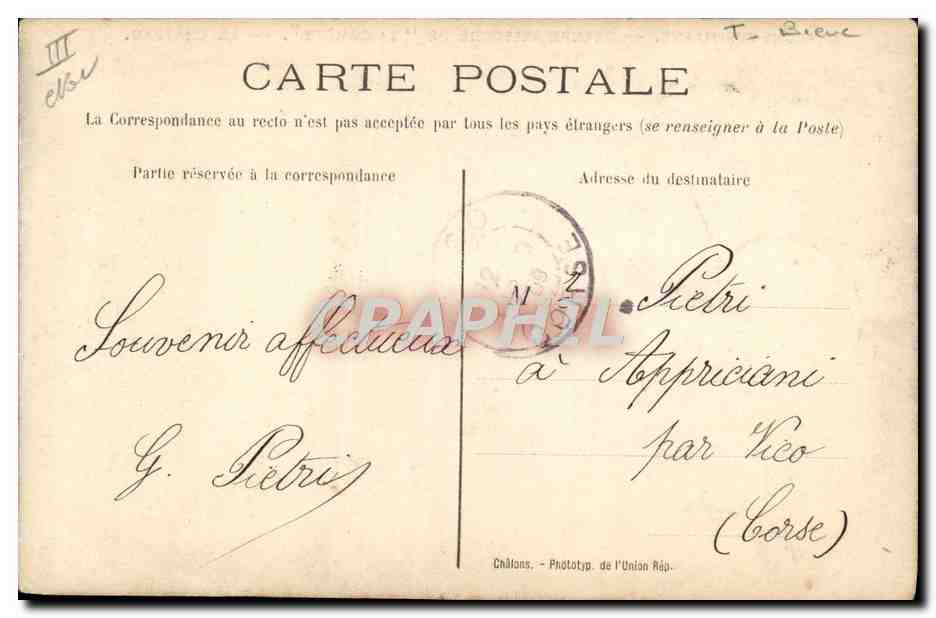 III
T- Bleue
CARTE POSTALE
La Correspondance au recto n'est pas acceptée par tous les pays étrangers (se renseigner à la Poste)
Partie réservée à la correspondance
Adresse du destinataire
Souvenir affectueux
G. Pietri
M
Pietri
à Appriciani
par Vico
(Corse)
CPAPHIL
Châlons. - Phototyp. de l'Union Rép.